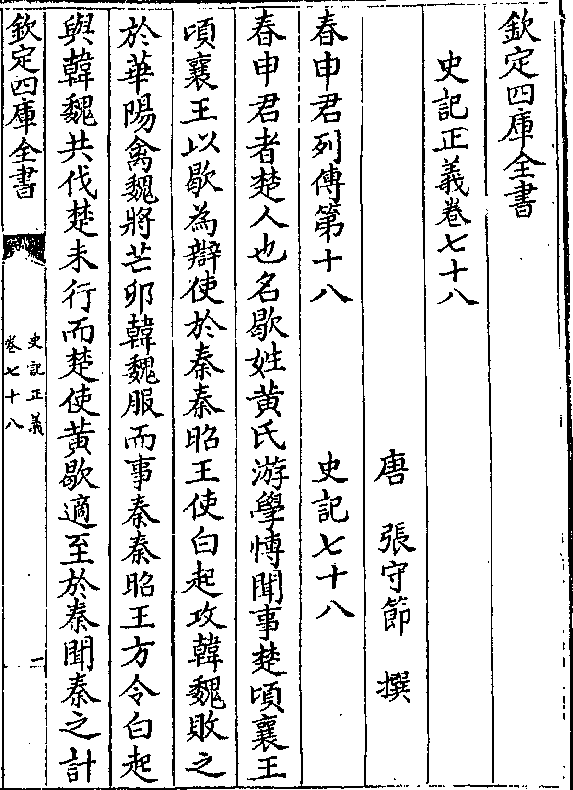 欽定四庫全書
史記正義卷七十八
唐 張守節 撰
春申君列傳第十八 史記七十八
春申君者楚人也名歇姓黄氏游學博聞事楚頃襄王
頃襄王以歇為辯使於秦秦昭王使白起攻韓魏敗之
於華陽禽魏將芒卯韓魏服而事秦秦昭王方令白起
與韓魏共伐楚未行而楚使黄歇適至於秦聞秦之計
欽定四庫全書
史記正義
卷七十八
一